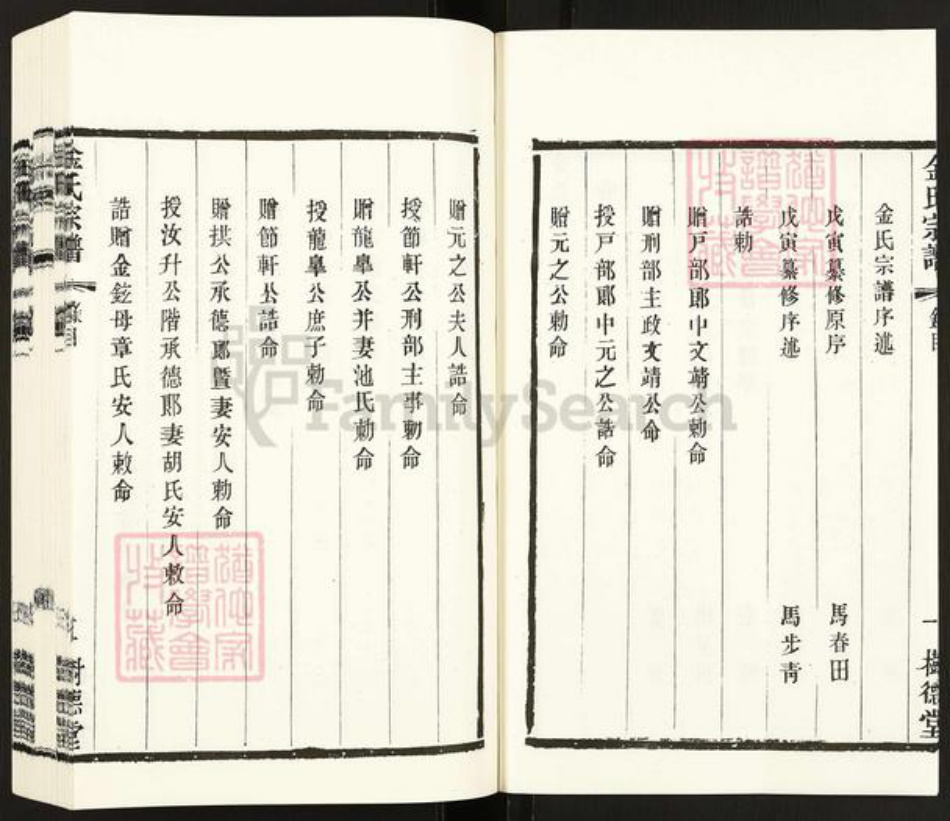 金氏宗譜
一 樹德堂
金氏宗譜序述
戊寅纂修原序 馬春田
戊寅纂修序述 馬步青
誥勅
贈戸部郎中文靖公勅命
贈刑部主政文靖公命
授戸部郎中元之公誥命
贈元之公勅命
贈元之公夫人誥命
授節軒公刑部主事勅命
贈龍臯公并妻池氏勅命
授龍臯公庶子勅命
贈節軒公誥命
贈拱公承德郎暨妻安人勅命
授汝升公階承德郎妻胡氏安人敕命
誥贈金鉉母章氏安人敕命
金氏宗譜
樹德堂
FamilySearch